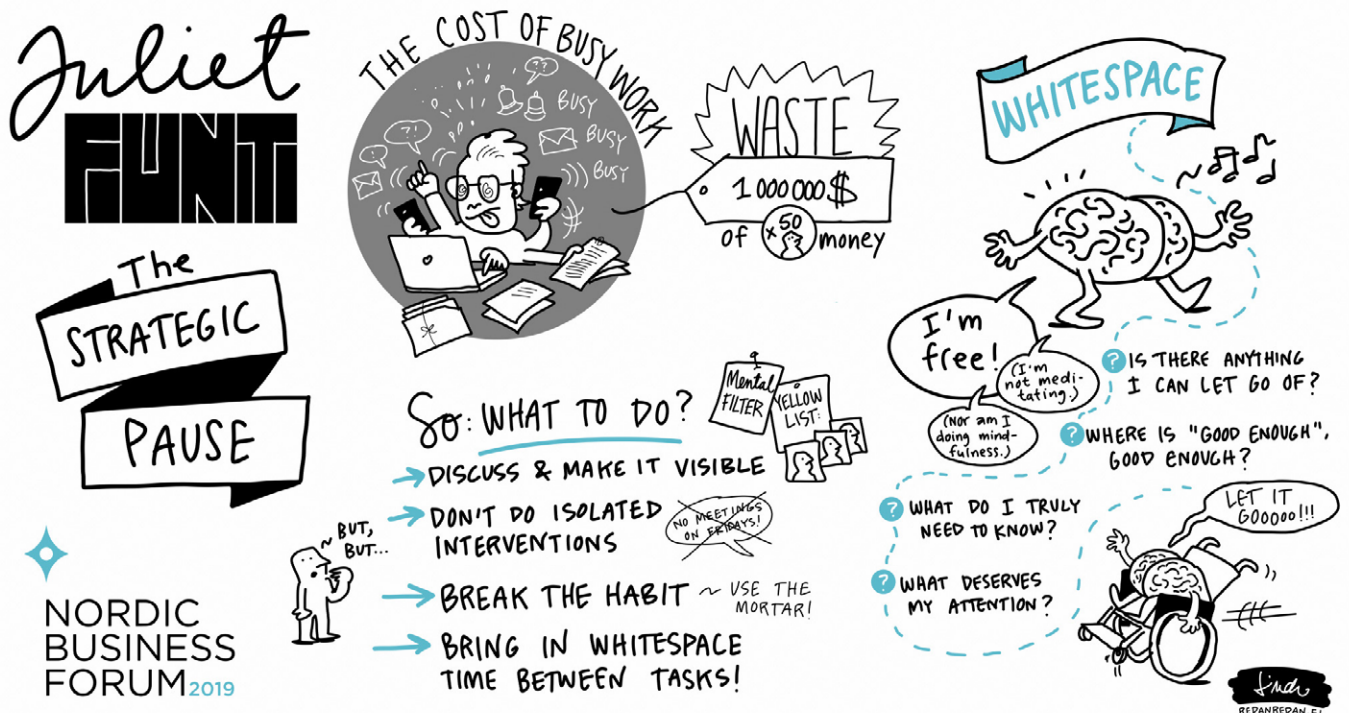 Juliet
FUNT
The
STRATEGIC
PAUSE
NORDIC
BUSINESS
FORUM 2019
THE COST OF BUSY WORK
??
?!
BUSY
BUSY
BUSY
WASTE
1 000 000 $
of x50 money
So: WHAT TO DO?
Mental
FILTER
YELLOW
LIST:
DISCUSS & MAKE IT VISIBLE
DON'T DO ISOLATED
INTERVENTIONS
NO MEETINGS
ON FRIDAYS!
~ BUT,
BUT...
BREAK THE HABIT ~ USE THE
MORTAR!
BRING IN WHITESPACE
TIME BETWEEN TASKS!
WHITESPACE
I'm
free!
(I'm
not medi-
tating.)
(Nor am I
doing mind-
fulness.)
? IS THERE ANYTHING
I CAN LET GO OF?
? WHERE IS "GOOD ENOUGH",
GOOD ENOUGH?
? WHAT DO I TRULY
NEED TO KNOW?
? WHAT DESERVES
MY ATTENTION?
LET IT
GOOOOO!!!
REDANREDAN.FI